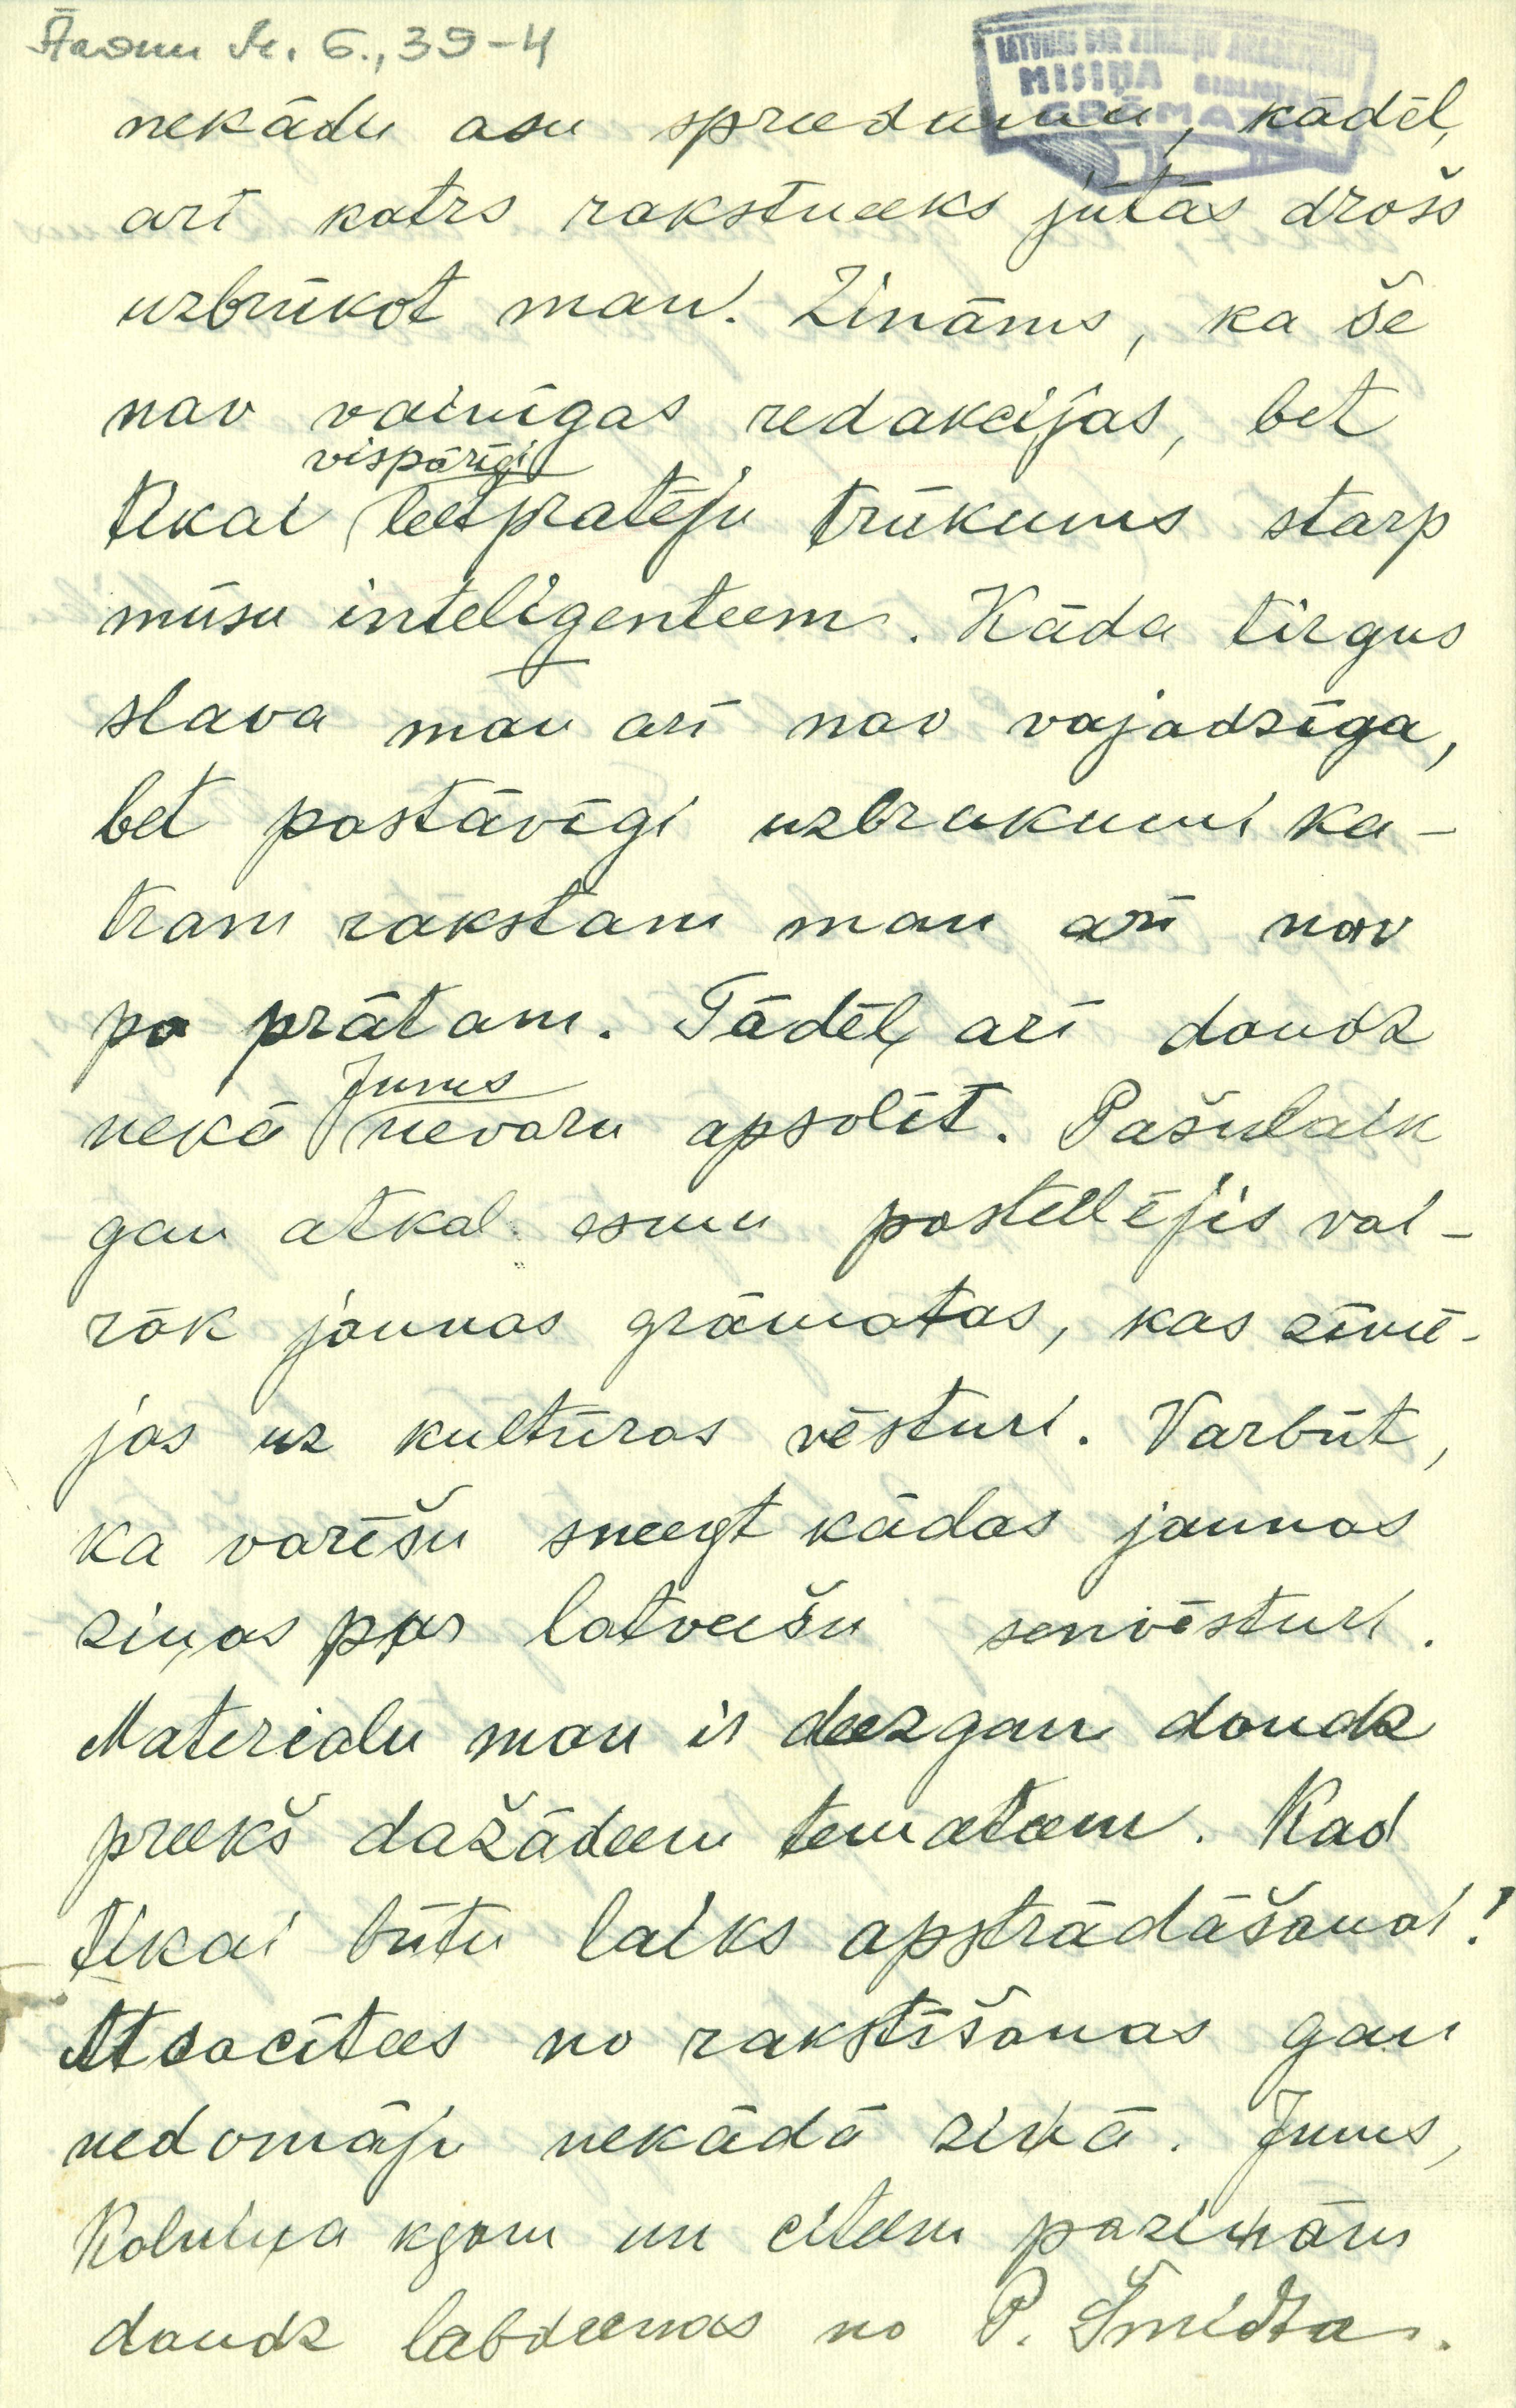 Āronu M. 6., 39-4
LATVIJAS PSR ZINĀTŅU AKADEMIJAS
MISIŅA BIBLIOTEKA
GRĀMATA
nekādu asu spreedumu, kādēļ
arī katrs rakstneeks jūtās drošs
uzbrūkot man. Zināms, ka še
nav vainīgas redakcijas, bet
vispārīgi
tikai leetpratēju trūkums starp
mūsu inteligenteem. Kāda tirgus
slava man arī nav vajadzīga,
bet pastāvīgi uzbrukumi ka-
tram rakstam man arī nav
pa prātam. Tādēļ arī daudz
Jums
nekā nevaru apsolīt. Pašulaik
gan atkal esmu pastellējis vai-
rāk jaunas grāmatas, kas zīmē-
jas uz kultūras vēsturi. Varbūt,
ka varēšu sneegt kādas jaunas
ziņas par latveešu senvēsturi.
Materialu man ir deezgan daudz
preekš dažādeem temateem. Kad
tikai būtu laiks apstrādāšanai!
Atsacītees no rakstīšanas gan
nedomāju nekādā ziņā. Jums,
Kalniņa kgam un citeem paziņām
daudz labdeenas no P. Šmidta.